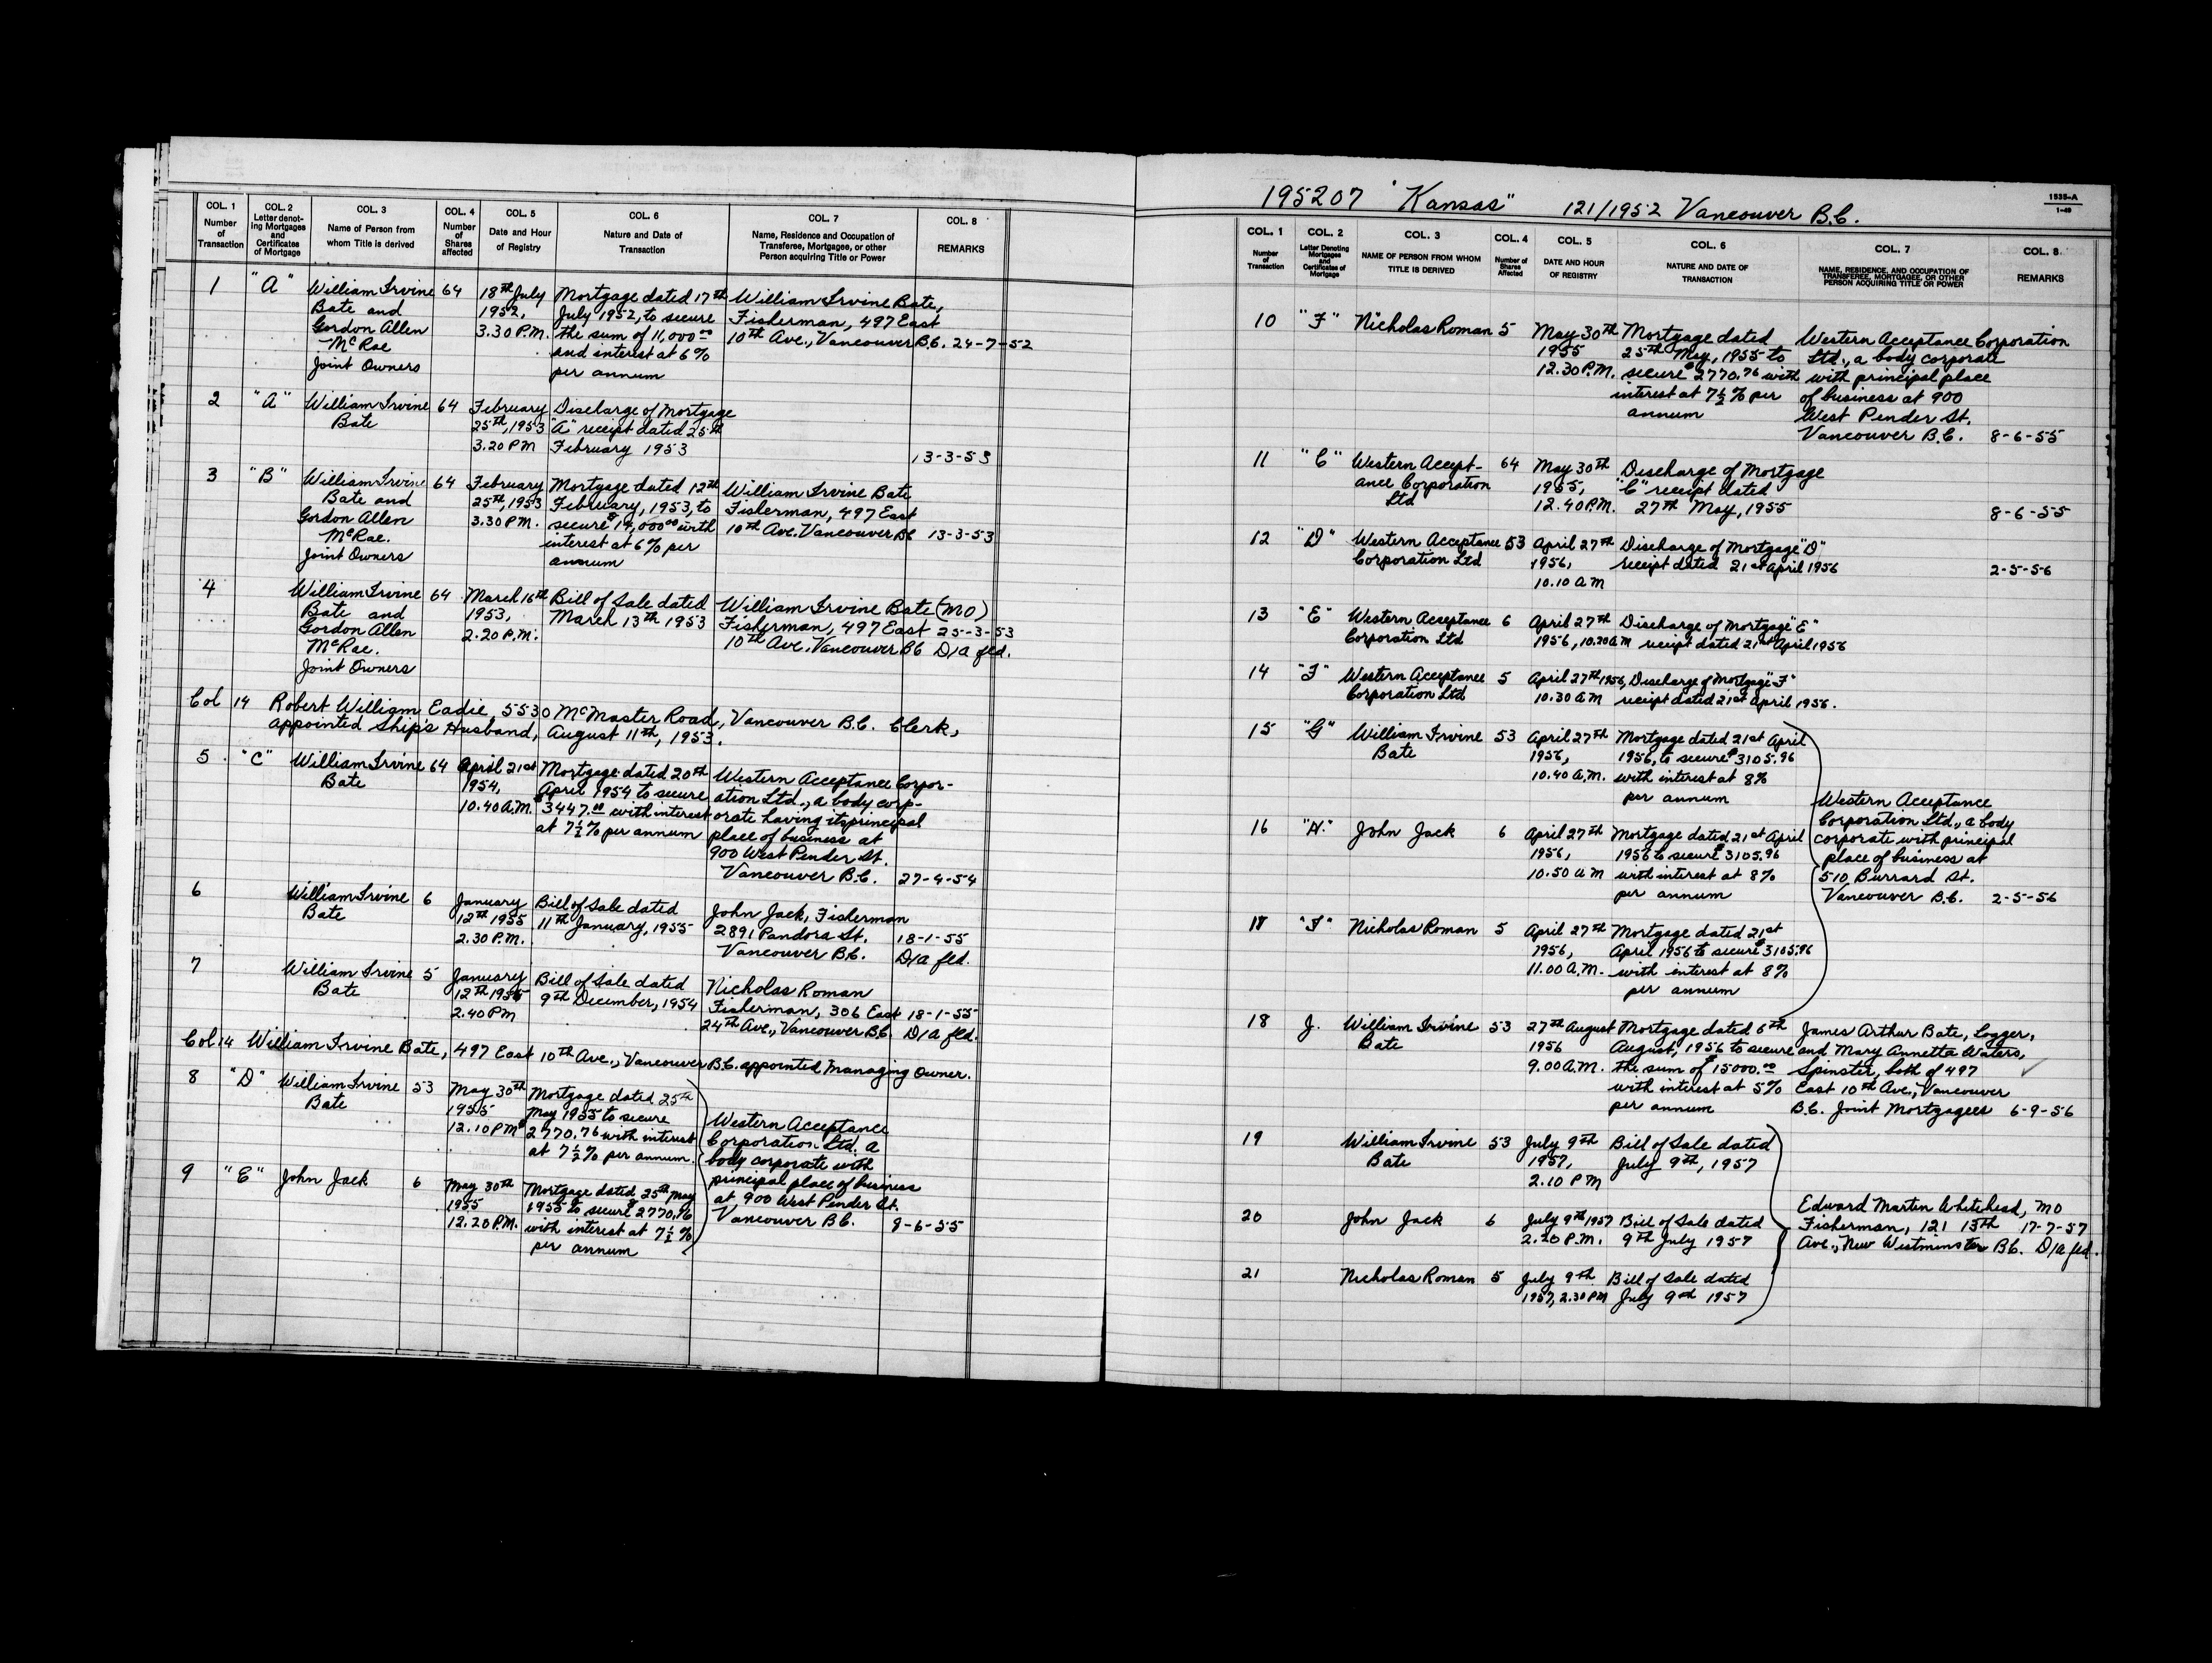 COL. 1 Number of Transaction
COL. 2 Letter denoting Mortgages and Certificates of Mortgage
COL. 3 Name of Person from whom Title is derived
COL. 4 Number of Shares affected
COL. 5 Date and Hour of Registry
COL. 6 Nature and Date of Transaction
COL. 7 Name, Residence and Occupation of Transferee, Mortgagee, or other Person acquiring Title or Power
COL. 8 REMARKS
1 "A" William Irvine 64 18th July Mortgage dated 17th William Irvine Bate,
Bate and 1952, July 1952, to secure Fisherman, 497 East
Gordon Allen 3.30 P.M. the sum of 11,000.00 10th Ave., Vancouver B.C. 24-7-52
McRae and interest at 6%
Joint Owners per annum
2 "A" William Irvine 64 February Discharge of Mortgage
Bate 25th, 1953 "A" receipt dated 25th
3.20 PM February 1953 13-3-53
3 "B" William Irvine 64 February Mortgage dated 12th William Irvine Bate
Bate and 25th, 1953 February, 1953, to Fisherman, 497 East
Gordon Allen 3.30 PM. secure $14,000.00 with 10th Ave. Vancouver BC 13-3-53
McRae. interest at 6% per
Joint Owners annum
4 William Irvine 64 March 16th Bill of Sale dated William Irvine Bate (MO)
Bate and 1953, March 13th 1953 Fisherman, 497 East 25-3-53
Gordon Allen 2.20 P.M. 10th Ave. Vancouver BC D/a fld.
McRae.
Joint Owners
Col 14 Robert William Eadie, 5530 McMaster Road, Vancouver B.C. Clerk,
appointed Ship's Husband, August 11th, 1953.
5 "C" William Irvine 64 April 21st Mortgage dated 20th Western Acceptance Corpor-
Bate 1954, April 1954 to secure ation Ltd., a body corp-
10.40 A.M. $3447.00 with interest orate having its principal
at 7½% per annum place of business at
900 West Pender St.
Vancouver B.C. 27-4-54
6 William Irvine 6 January Bill of Sale dated John Jack, Fisherman
Bate 12th 1955 11th January, 1955 2891 Pandora St. 18-1-55
2.30 P.M. Vancouver B.C. D/a fld.
7 William Irvine 5 January Bill of Sale dated Nicholas Roman
Bate 12th 1955 9th December, 1954 Fisherman, 306 East 18-1-55
2.40 PM 24th Ave., Vancouver BC. D/a fld.
Col 14 William Irvine Bate, 497 East 10th Ave., Vancouver B.C. appointed Managing Owner.
8 "D" William Irvine 53 May 30th Mortgage dated 25th
Bate 1955 May 1955 to secure Western Acceptance
12.10 PM $2770.76 with interest Corporation Ltd. a
at 7½% per annum. body corporate with
9 "E" John Jack 6 May 30th Mortgage dated 25th May principal place of business
1955 1955 to secure $2770.76 at 900 West Pender St.
12.20 P.M. with interest at 7½% Vancouver B.C. 8-6-55
per annum
195207 "Kansas" 121/1952 Vancouver B.C.
1535-A
1-49
COL. 1 Number of Transaction
COL. 2 Letter Denoting Mortgages and Certificates of Mortgage
COL. 3 NAME OF PERSON FROM WHOM TITLE IS DERIVED
COL. 4 Number of Shares Affected
COL. 5 DATE AND HOUR OF REGISTRY
COL. 6 NATURE AND DATE OF TRANSACTION
COL. 7 NAME, RESIDENCE, AND OCCUPATION OF TRANSFEREE, MORTGAGEE, OR OTHER PERSON ACQUIRING TITLE OR POWER
COL. 8 REMARKS
10 "F" Nicholas Roman 5 May 30th Mortgage dated Western Acceptance Corporation
1955 25th May, 1955 to Ltd., a body corporate
12.30 P.M. secure $2770.76 with with principal place
interest at 7½% per of business at 900
annum West Pender St.
Vancouver B.C. 8-6-55
11 "C" Western Accept- 64 May 30th Discharge of Mortgage
ance Corporation 1955, "C" receipt dated
Ltd 12.40 P.M. 27th May, 1955 8-6-55
12 "D" Western Acceptance 53 April 27th Discharge of Mortgage "D"
Corporation Ltd 1956, receipt dated 21st April 1956 2-5-56
10.10 AM
13 "E" Western Acceptance 6 April 27th Discharge of Mortgage "E"
Corporation Ltd 1956, 10.20 AM receipt dated 21st April 1956
14 "F" Western Acceptance 5 April 27th 1956, Discharge of Mortgage "F"
Corporation Ltd 10.30 AM receipt dated 21st April 1956.
15 "G" William Irvine 53 April 27th Mortgage dated 21st April
Bate 1956, 1956, to secure $3105.96
10.40 A.M. with interest at 8%
per annum Western Acceptance
Corporation Ltd., a body
16 "H." John Jack 6 April 27th Mortgage dated 21st April corporate with principal
1956, 1956 to secure $3105.96 place of business at
10.50 AM with interest at 8% 510 Burrard St.
per annum Vancouver B.C. 2-5-56
17 "I" Nicholas Roman 5 April 27th Mortgage dated 21st
1956, April 1956 to secure $3105.96
11.00 A.M. with interest at 8%
per annum
18 J. William Irvine 53 27th August Mortgage dated 6th James Arthur Bate, Logger,
Bate 1956 August, 1956 to secure and Mary Annetta Waters,
9.00 A.M. the sum of $15000.00 Spinster, both of 497
with interest at 5% East 10th Ave., Vancouver
per annum B.C. Joint Mortgagees 6-9-56
19 William Irvine 53 July 9th Bill of Sale dated
Bate 1957, July 9th, 1957
2.10 PM
Edward Martin Whitehead, MO
20 John Jack 6 July 9th 1957 Bill of Sale dated Fisherman, 121 13th 17-7-57
2.20 P.M. 9th July 1957 Ave., New Westminster BC. D/a fld.
21 Nicholas Roman 5 July 9th Bill of Sale dated
1957, 2.30 PM July 9th 1957